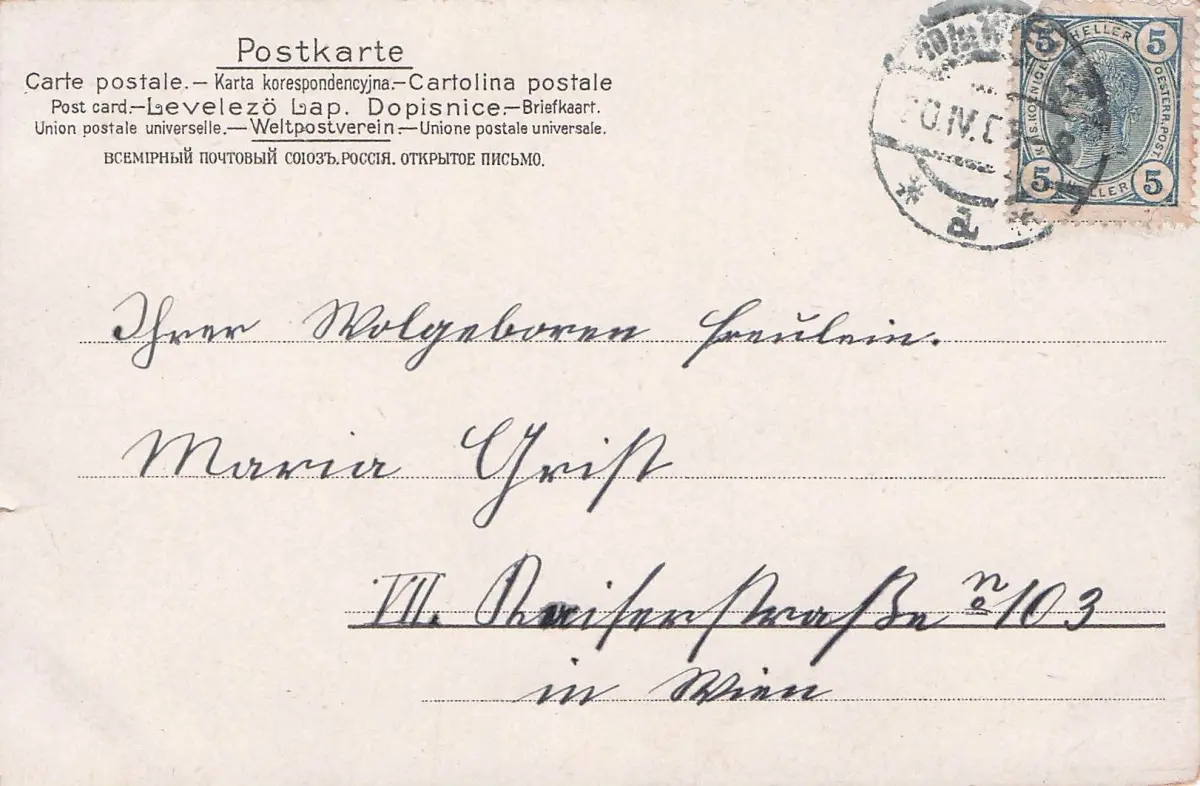 Postkarte
Carte postale.—Karta korespondencyjna—Cartolina postale
Post card.—Levelezö Lap. Dopisnice.—Briefkaart.
Union postale universelle.—Weltpostverein.—Unione postale universale.
ВСЕМІРНЫЙ ПОЧТОВЫЙ СОЮЗЪ.РОССІЯ. ОТКРЫТОЕ ПИСЬМО.
5 HELLER 5
KAIS.KOENIGL. OESTERR.POST
5 HELLER 5
Ihrer Wolgeboren Freulein.
Maria Grist
VII. Kaiserstraße No 103
in Wien